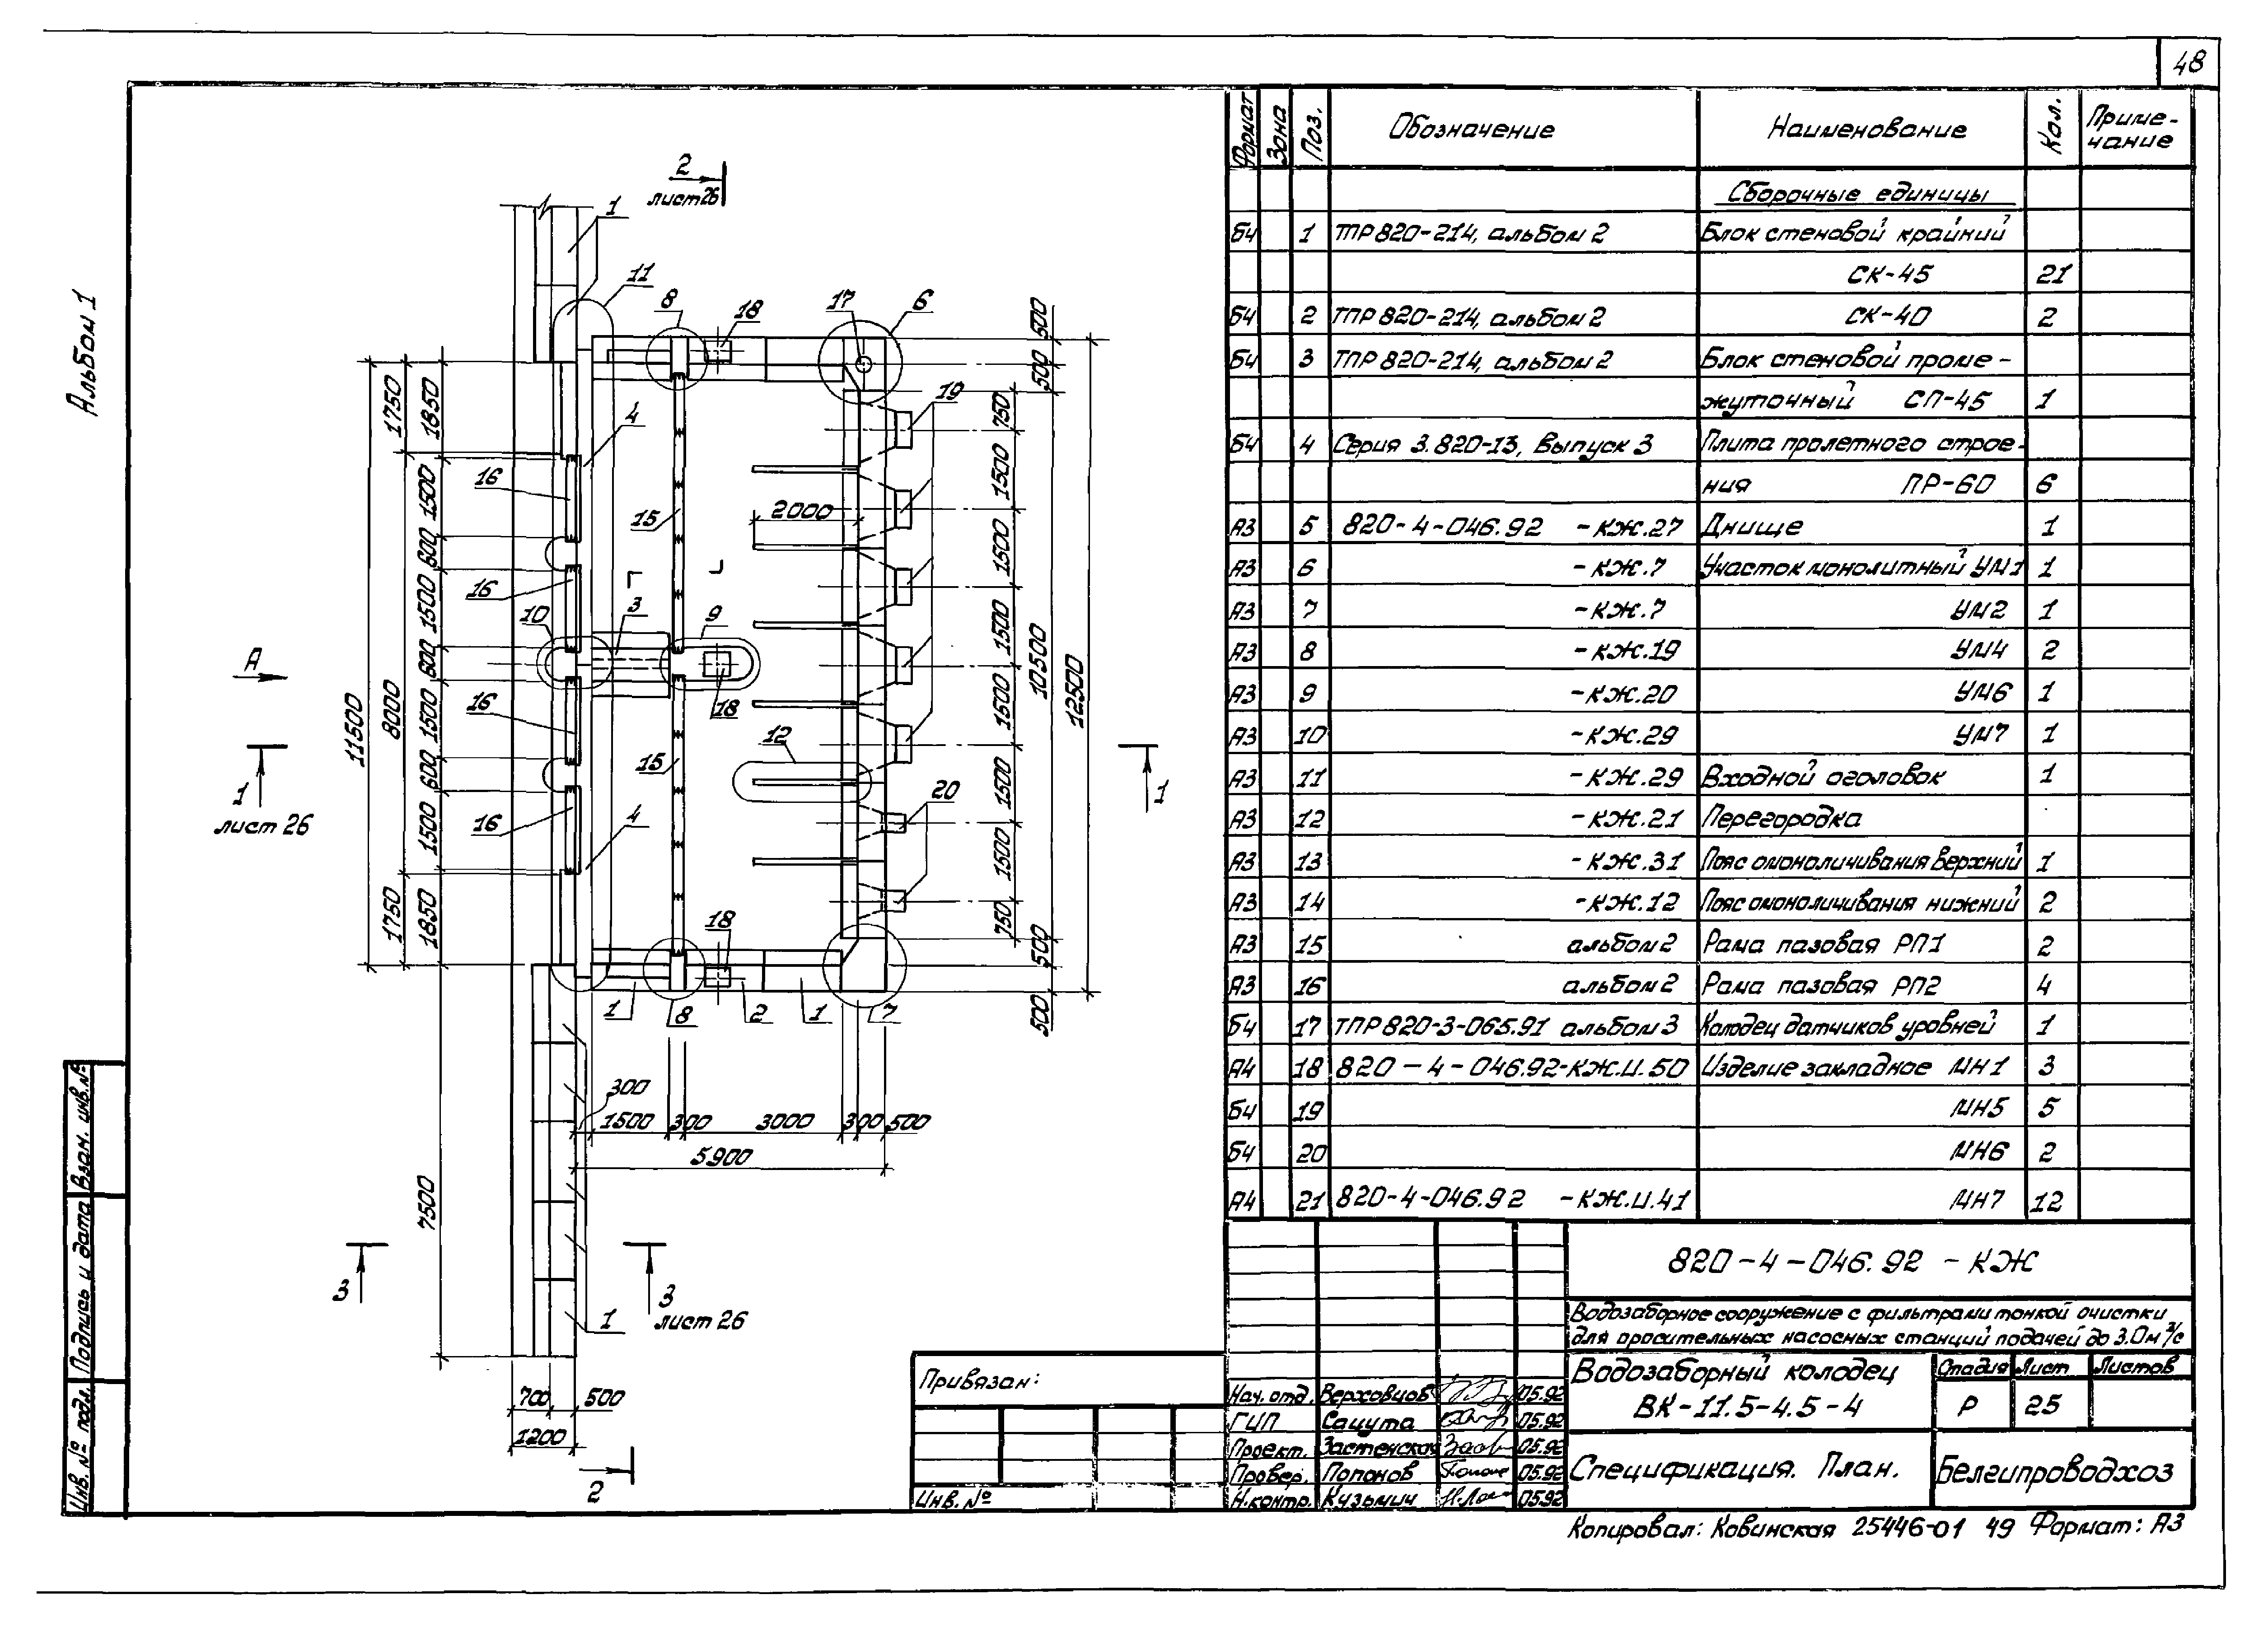 48
Альбом 1
Формат Зона Поз. Обозначение Наименование Кол. Приме-
чание
Сборочные единицы
БЧ 1 ТПР 820-214, альбом 2 Блок стеновой крайний
СК-45 21
БЧ 2 ТПР 820-214, альбом 2 СК-40 2
БЧ 3 ТПР 820-214, альбом 2 Блок стеновой проме-
жуточный СП-45 1
БЧ 4 Серия 3.820-13, Выпуск 3 Плита пролетного строе-
ния ПР-60 6
А3 5 820-4-046.92 -КЖ.27 Днище 1
А3 6 -КЖ.7 Участок монолитный УМ1 1
А3 7 -КЖ.7 УМ2 1
А3 8 -КЖ.19 УМ4 2
А3 9 -КЖ.20 УМ6 1
А3 10 -КЖ.29 УМ7 1
А3 11 -КЖ.29 Входной оголовок 1
А3 12 -КЖ.21 Перегородка
А3 13 -КЖ.31 Пояс омоноличивания верхний 1
А3 14 -КЖ.12 Пояс омоноличивания нижний 2
А3 15 альбом 2 Рама пазовая РП1 2
А3 16 альбом 2 Рама пазовая РП2 4
БЧ 17 ТПР 820-3-065.91 альбом 3 Колодец датчиков уровней 1
А4 18 820-4-046.92-КЖ.И.50 Изделие закладное МН1 3
БЧ 19 МН5 5
БЧ 20 МН6 2
А4 21 820-4-046.92 -КЖ.И.41 МН7 12
2
лист 26
1
11
8
18
17
6
500
500
19
4
1750
1850
750
16
15
2000
1500
1500
600
1500
16
10
3
9
1500
1500
А
600
10500
12500
11500
8000
16
18
1500
1500
12
15
600
20
1500
1
лист 26
1
16
4
1500
1500
1750
1850
18
750
500
500
1
8
2
1
7
300
1500 300 3000 300 500
5900
7500
3
3
лист 26
1
700 500
1200
2
Взам. инв. №
Подпись и дата
Инв. № подл.
Привязан:
Инв. №
820-4-046.92 -КЖ
Водозаборное сооружение с фильтрами тонкой очистки
для оросительных насосных станций подачей до 3.0 м³/с
Нач. отд. Верховцов 05.92
ГИП Сацута 05.92
Проект. Застенская 05.92
Провер. Попонов 05.92
Н.контр. Кузьмич 05.92
Водозаборный колодец
ВК-11.5-4.5-4
Стадия Лист Листов
Р 25
Спецификация. План.
Белгипроводхоз
Копировал: Ковинская 25446-01 49 Формат: А3